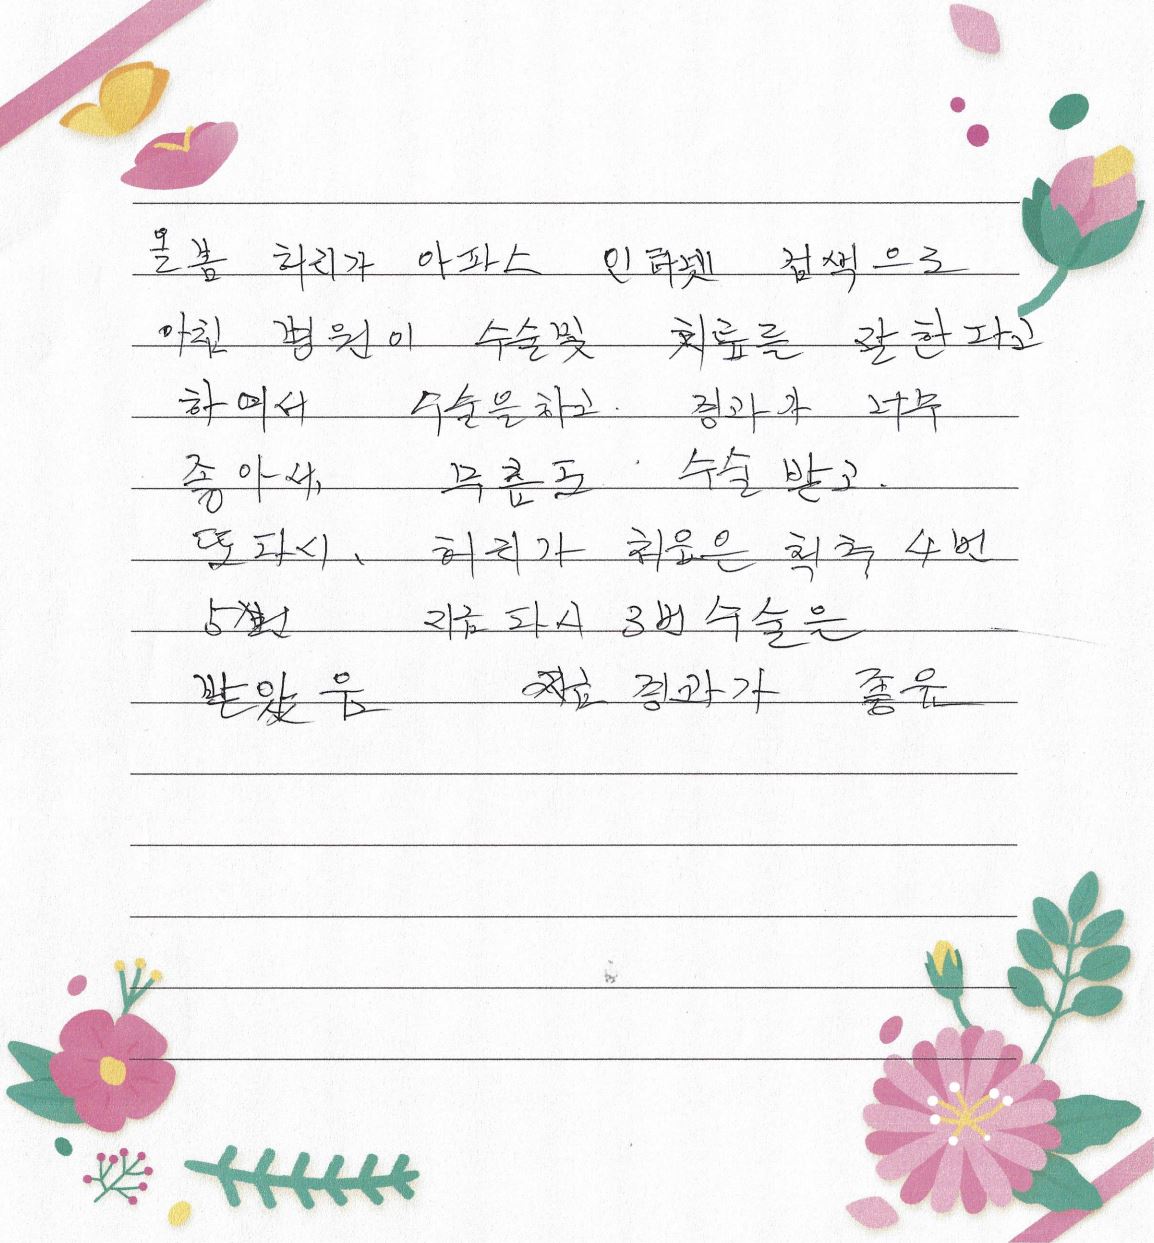 올봄 허리가 아파스 인터넷 검색으로
아침 병원이 수술및 치료를 잘한다고
하여서 수술을하고. 경과가 너무
좋아서, 무릎도 수술 받고.
또다시, 허리가 처음은 척추 4번
5번 지금다시 3번 수술은
받았음 경과가 좋음